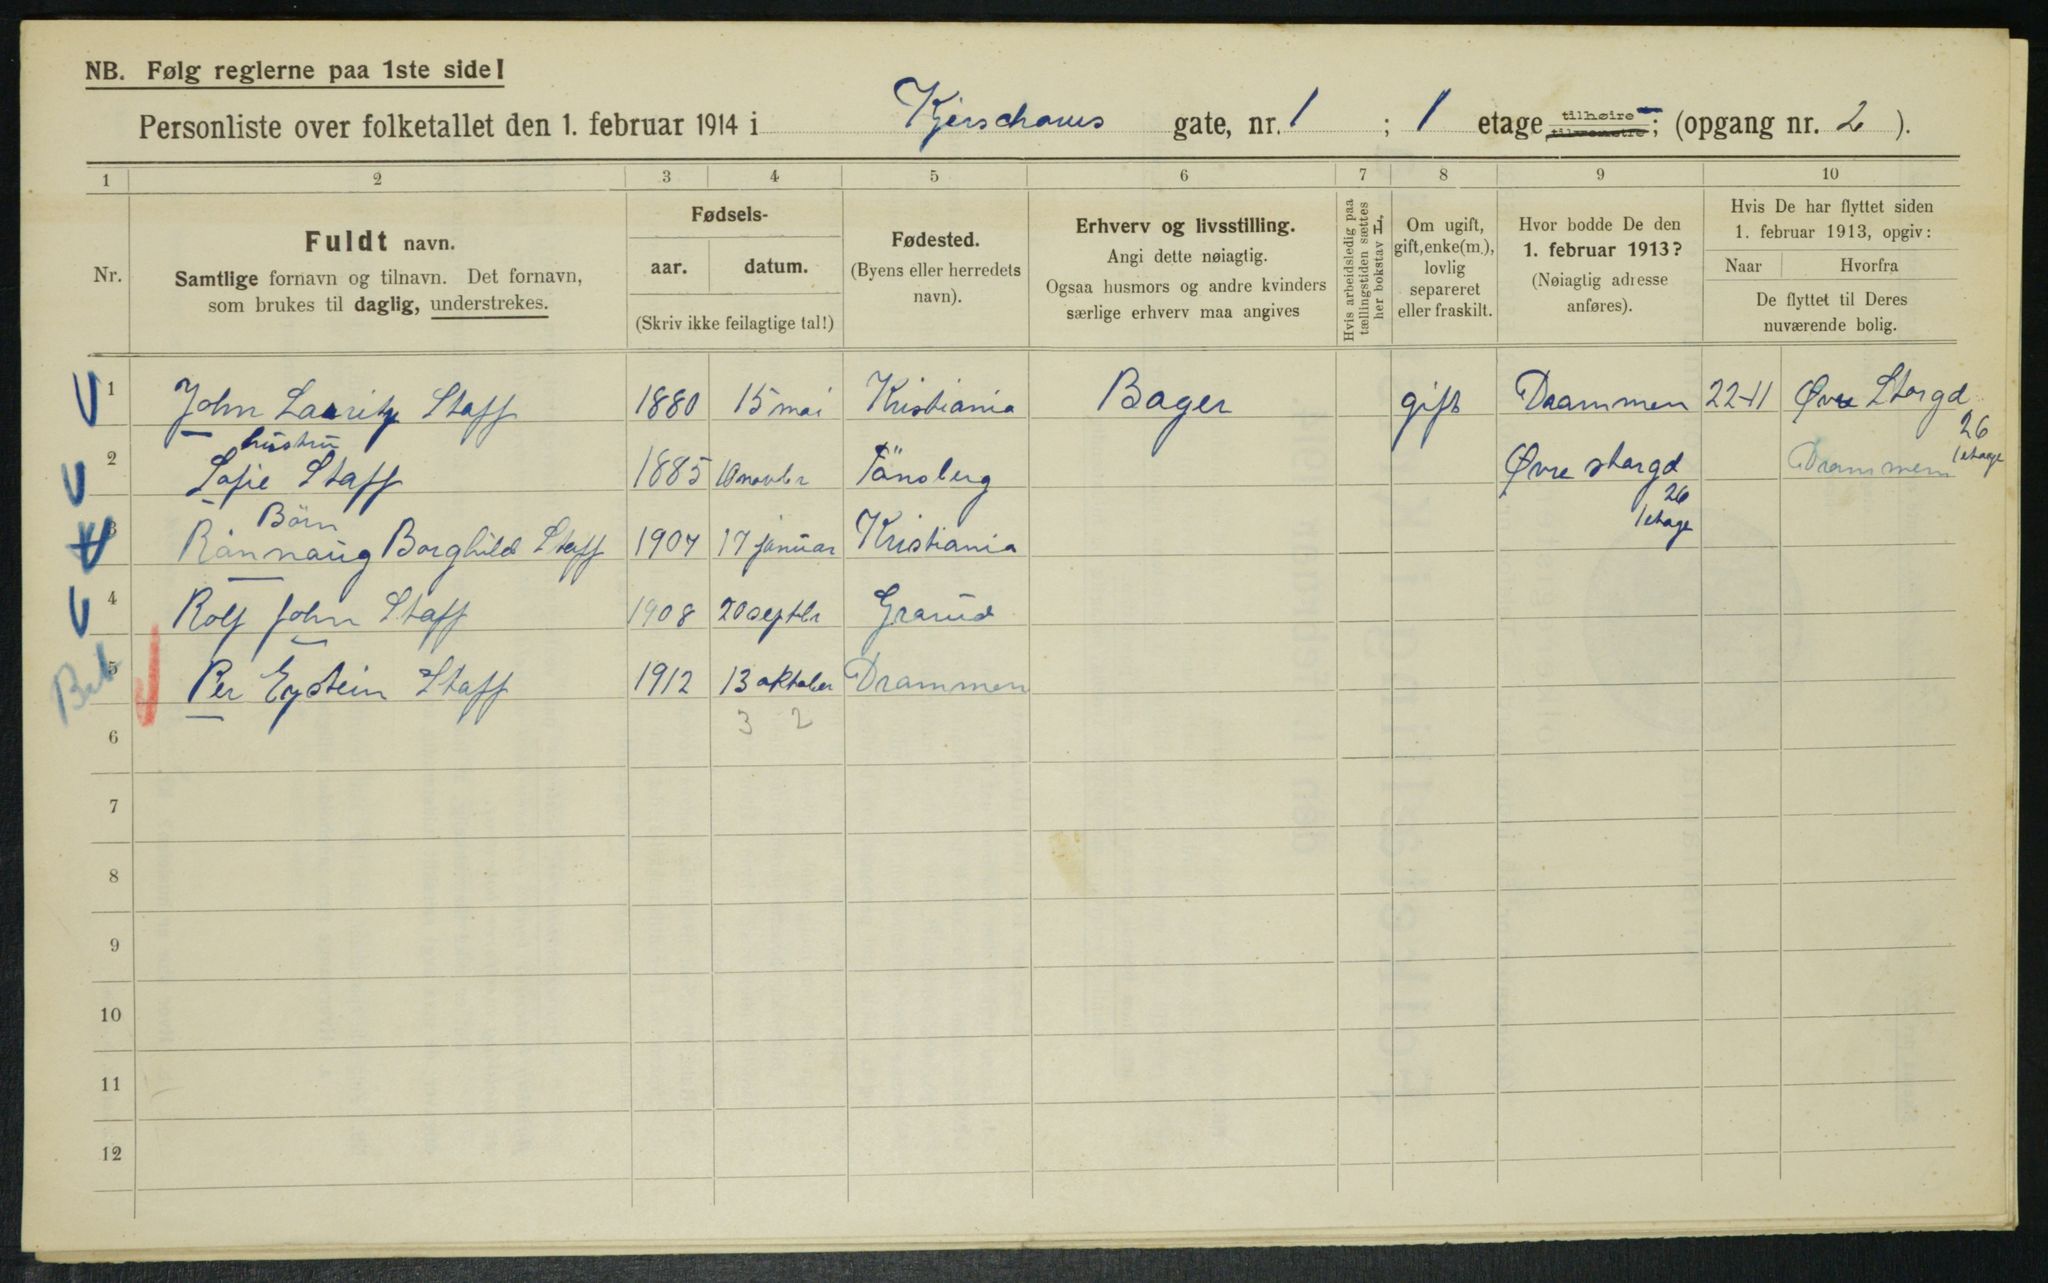 NB. Følg reglerne paa 1ste side!
Personliste over folketallet den 1. februar 1914 i Kjerschows gate, nr. 1 ; 1 etage tilhøire tilvenstre; (opgang nr. 2 ).
1 2 3 4 5 6 7 8 9 10
Nr.
Fuldt navn.
Samtlige fornavn og tilnavn. Det fornavn,
som brukes til daglig, understrekes.
Fødsels-
aar. datum.
(Skriv ikke feilagtige tal!)
Fødested.
(Byens eller herredets
navn).
Erhverv og livsstilling.
Angi dette nøiagtig.
Ogsaa husmors og andre kvinders
særlige erhverv maa angives
Hvis arbeidsledig paa
tællingstiden sættes
her bokstav L.
Om ugift,
gift, enke(m.),
lovlig
separeret
eller fraskilt.
Hvor bodde De den
1. februar 1913?
(Nøiagtig adresse
anføres).
Hvis De har flyttet siden
1. februar 1913, opgiv:
Naar Hvorfra
De flyttet til Deres
nuværende bolig.
1 John Lauritz Staff 1880 15 mai Kristiania Bager gift Drammen 22-11 Øvre Storgd
26
1 etage
hustru
2 Sofie Staff 1885 novbr Tönsberg Øvre storgd Drammen
26
1 etage
Börn
3 Rannaug Borghild Staff 1907 17 januar Kristiania
4 Rolf John Staff 1908 20 septbr Grorud
5 Per Eystein Staff 1912 13 oktober Drammen
3 2
6
7
8
9
10
11
12